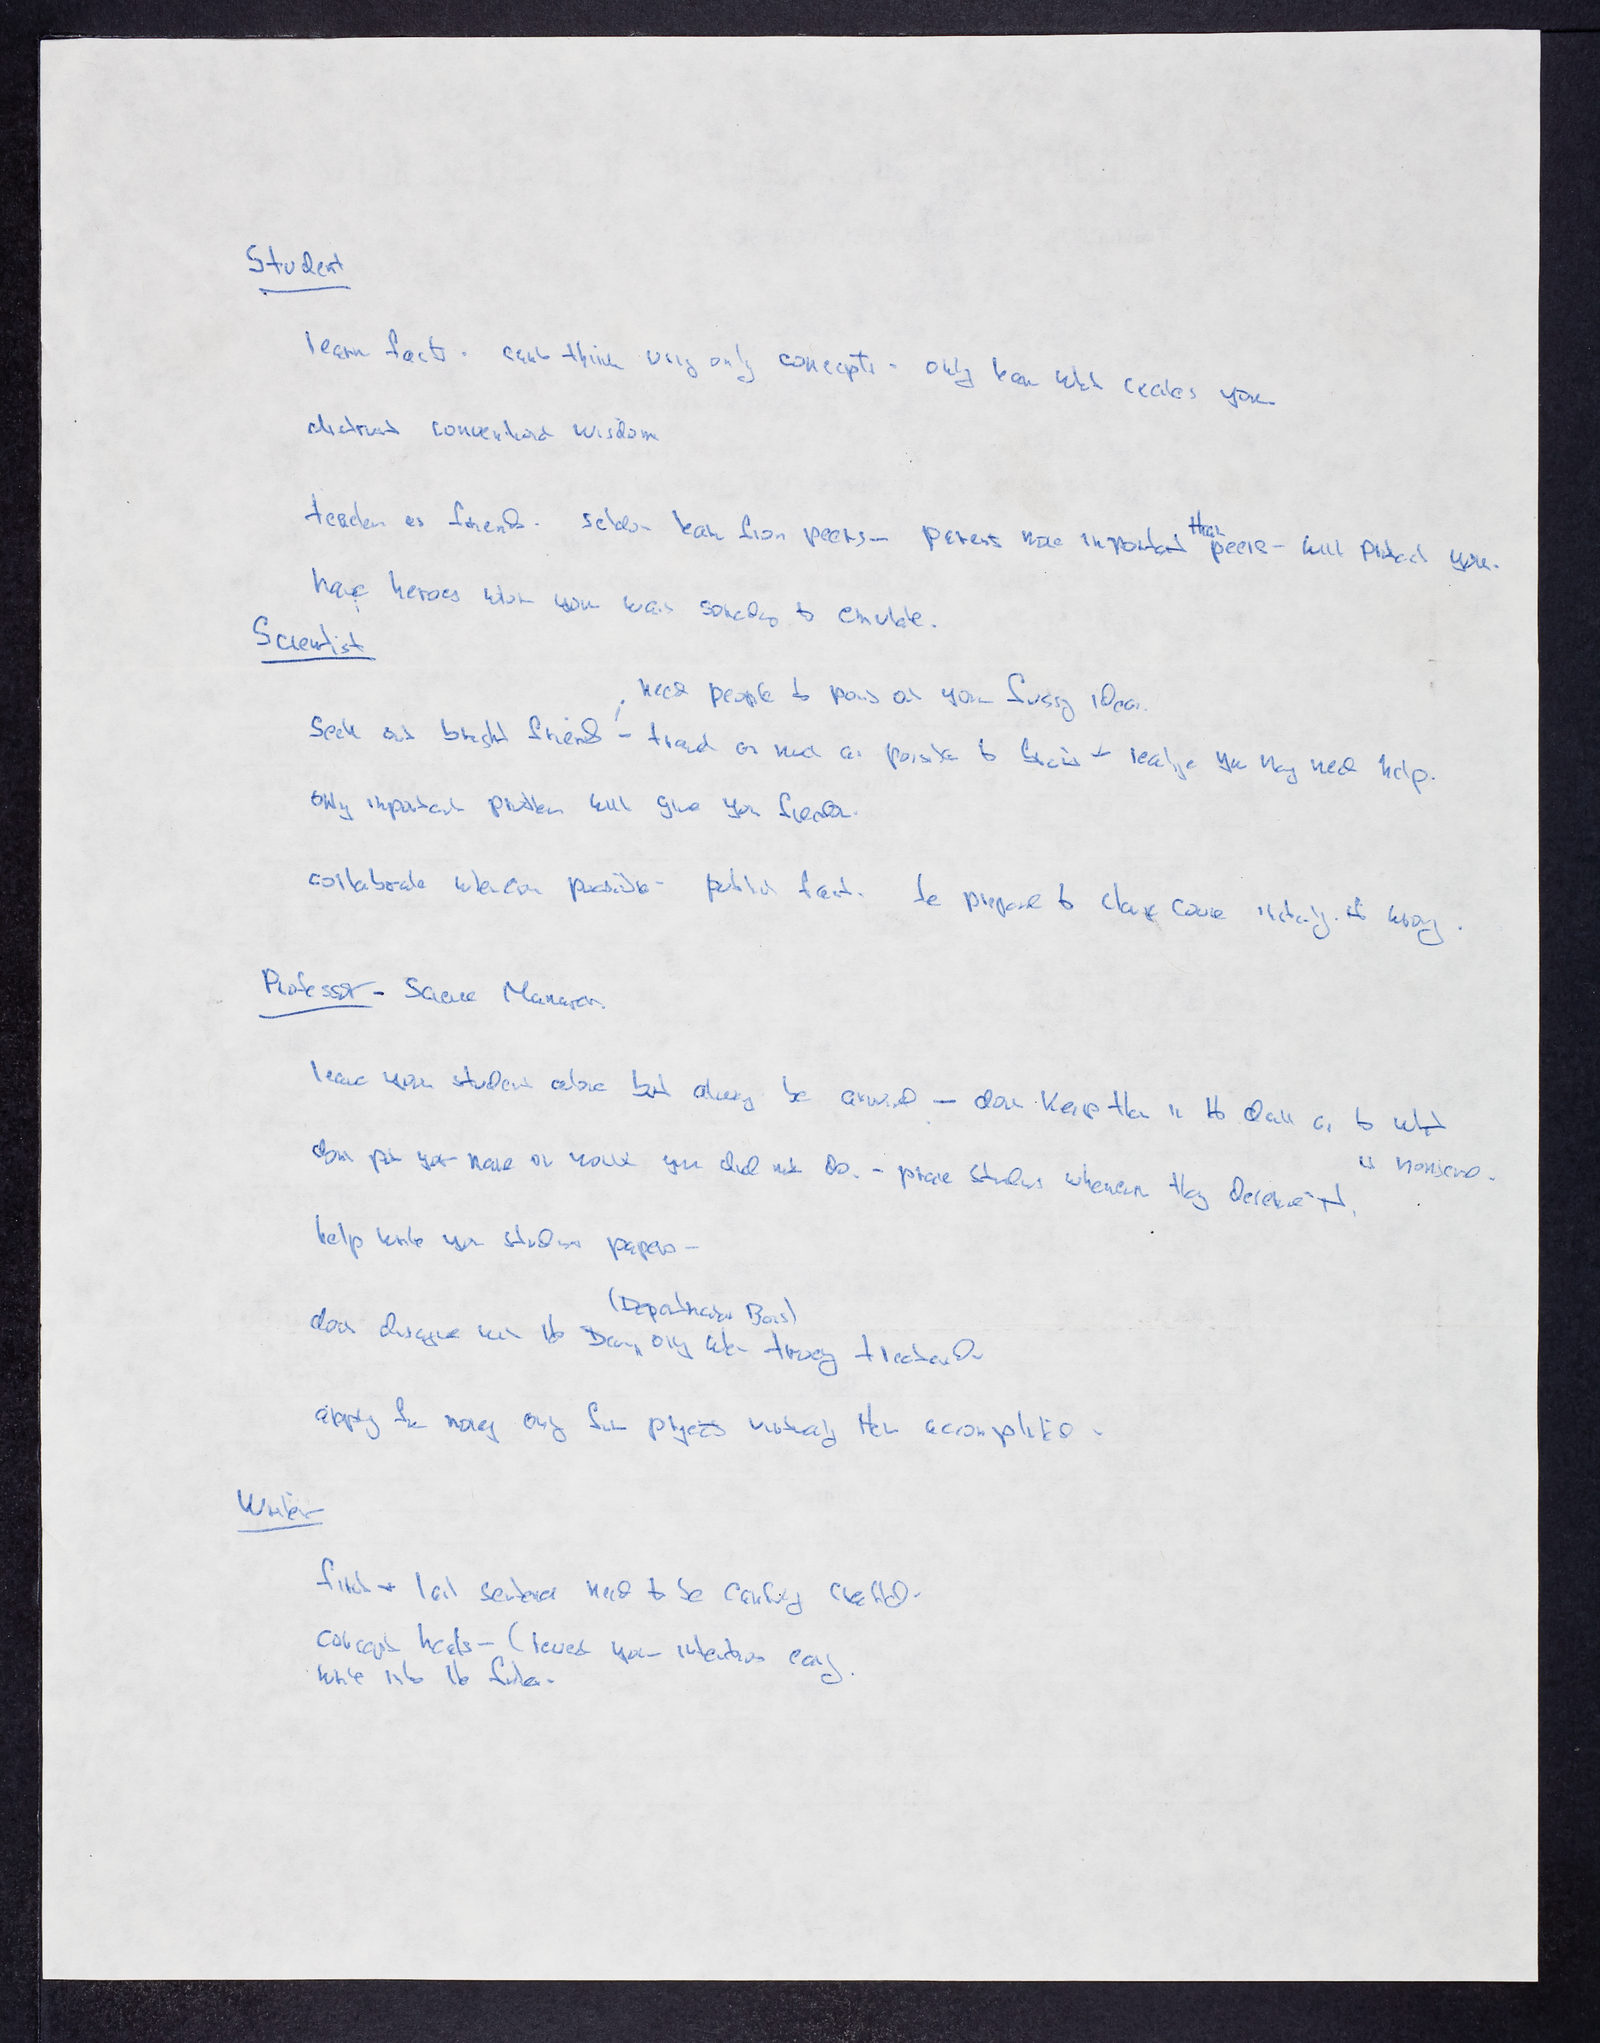 Student
learn facts. can't think using only concepts - only learn what excites you
distrust conventional wisdom
teachers as friends. seldom learn from peers - parents more important than peers - will protect you.
have heroes whom you want someday to emulate.
Scientist
need people to points out your fuzzy ideas.
Seek out bright friends - travel as much as possible to + realize you may need help.
only important problem will give you freedom.
collaborate whenever possible - publish fast. be prepared to change course instantly if wrong.
Professor - Science Manager
leave your student alone but always be around - don't keep them in the dark as to what is nonsense.
don't put your name on you did not do. - praise students whenever they deserve it.
help write your students papers -
(Department Boss)
don't disagree with the Dean, only when
apply for money only for projects virtually then accomplished.
Writer
first + last sentence need to be carefully crafted.
concept - (reveal your intentions early.
write into the future.